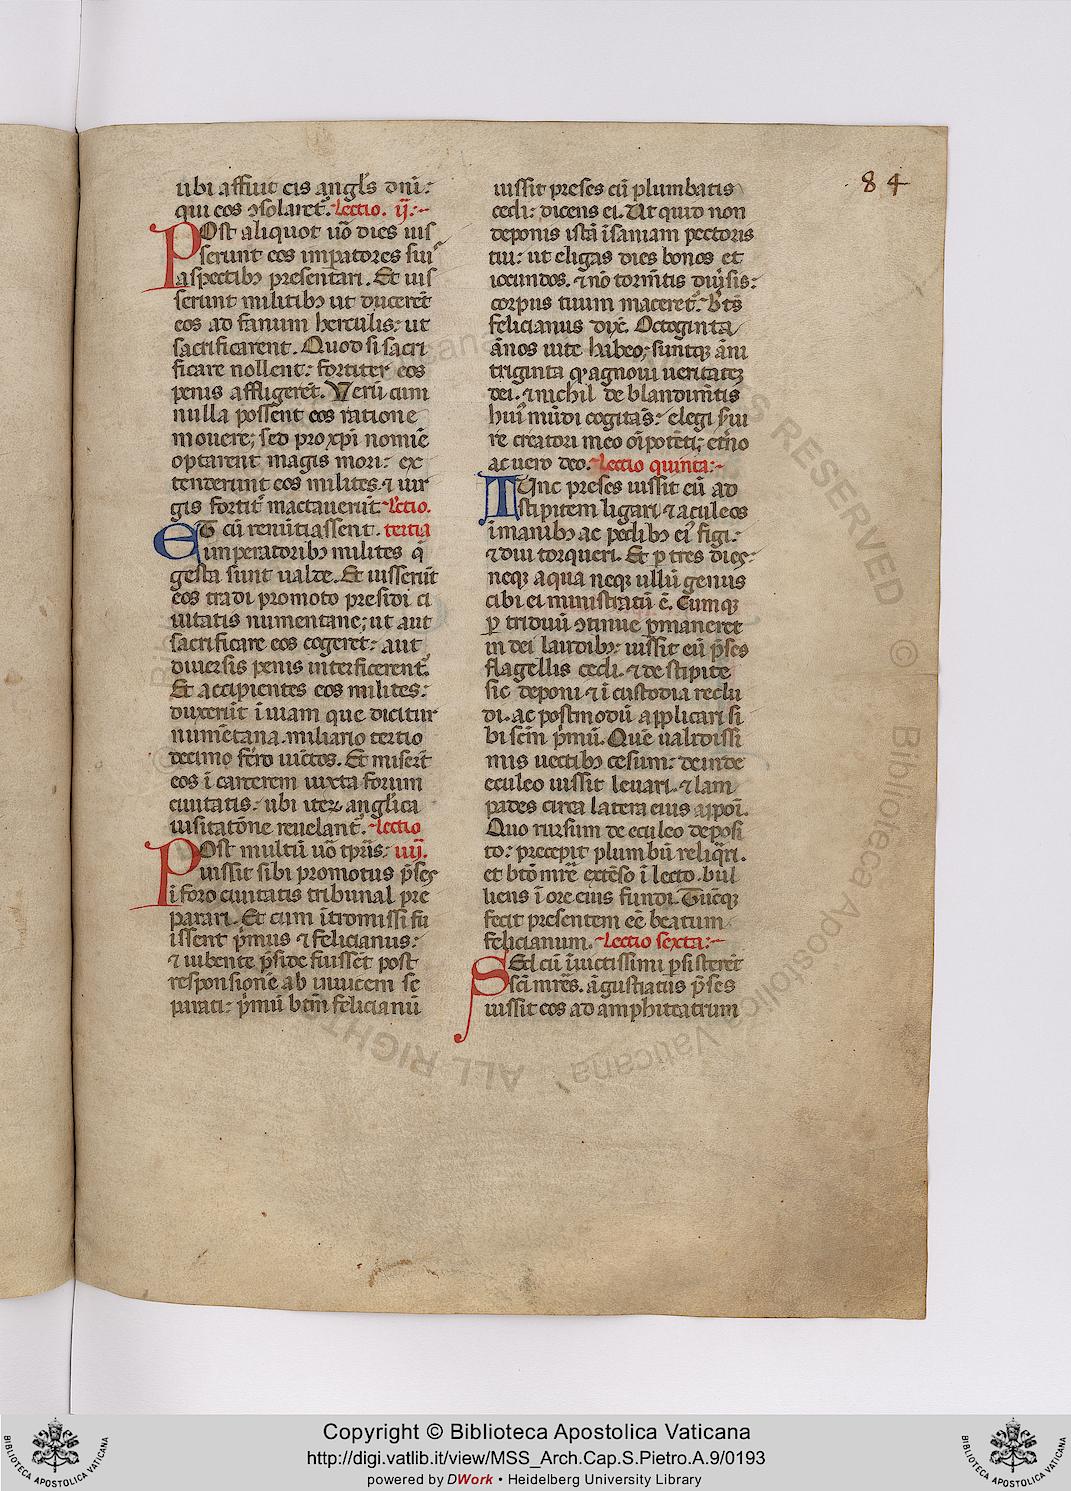 84
ubi affuit eis angl's dn̄i:
qui eos ɔsolaret̄. Lectio. ij:-
POst aliquot uō dies iuſ
serunt eos imꝑatores sui'
aspectibꝫ presentari. Et iuſ
serunt militibꝫ ut ducerēt
eos ad fanum herculis: ut
sacrificarent. Quod si sacri
ficare nollent: fortiter eos
penis affligerēt. Verū cum
nulla possent eos ratione
mouere; sed pro xp̄i nomīe
optarent magis mori: ex
tenderunt eos milites ⁊ uir
gis fortit̾ mactauerūt Lc̄tio.
ET cū renūtiassent. tertia
imperatoribꝫ milites q̄
gesta sunt ualde. Et iusserūt
eos tradi promoto presidi ci
uitatis numentane; ut aut
sacrificare eos cogeret: aut
diuersis penis interficerent̄.
Et accipientes eos milites:
duxerūt ī uiam que dicitur
numētana. miliario tertio
decimo fērō uīctos. Et miserūt
eos ī carcerem iuxta forum
ciuitatis: ubi iteꝝ angl'ica
uisitatōne reuelant̄. Lectio
POst multū uō tp̄ris: iiij.
iussit sibi promotus p̄ses
ī foro ciuitatis tribunal pre
parari. Et cum ītromissi fu
issent p̄mus ⁊ felicianus:
⁊ iubente p̄side fuissēt post
responsionē ab inuicem se
parati: p̄mū btm̄ felicianū
iussit preses cū plumbatis
cedi: dicens ei. Ut quid non
deponis istā īsaniam pectoris
tui: ut eligas dies bonos et
iocundos. ⁊ nō tormn̄tis diu̾sis:
corpus tuum maceret̄. Bt̄s
felicianus dix̄. Octoginta
ānos uite habeo; suntqꝫ āni
triginta qͦ agnoui ueritatē
dei. ⁊ nichil de blandimn̄tis
hui' mūdi cogitās: elegi s̾ui
re creatori meo oīpotēti; et̾no
ac uero deo. Lectio quinta:-
TUnc preses iussit eū ad
stipitem ligari ⁊ aculeos
ī manibꝫ ac pedibꝫ ei' figi:
⁊ diu torqueri. Et ꝑ tres dies:
neqꝫ aqua neqꝫ ullū genus
cibi ei ministratū ē. Cumqꝫ
ꝑ triduū ɔtinue ꝑmaneret
in dei laudibꝫ: iussit eū p̄ses
flagellis cedi. ⁊ de stipite
sic deponi ⁊ ī custodia reclu
di. ac postmodū applicari si
bi scm̄ p̄mū. Quē ualidissi
mis uectibꝫ cesum: deinde
eculeo iussit leuari. ⁊ lam
pades circa latera eius appoī.
Quo rursum de eculeo deposi
to: precepit plumbū reliq̄ri.
et btō mr̄e extēso ī lecto. bul
liens ī ore eius fundi. Tūcqꝫ
fecit presentem eē beatum
felicianum. Lectio sexta:-
SEd cū īuictissimi ꝑsisterēt
sc̄i mr̄es. āgustiatus p̄ses
iussit eos ad amphiteatrum
Copyright © Biblioteca Apostolica Vaticana
http://digi.vatlib.it/view/MSS_Arch.Cap.S.Pietro.A.9/0193
powered by DWork • Heidelberg University Library